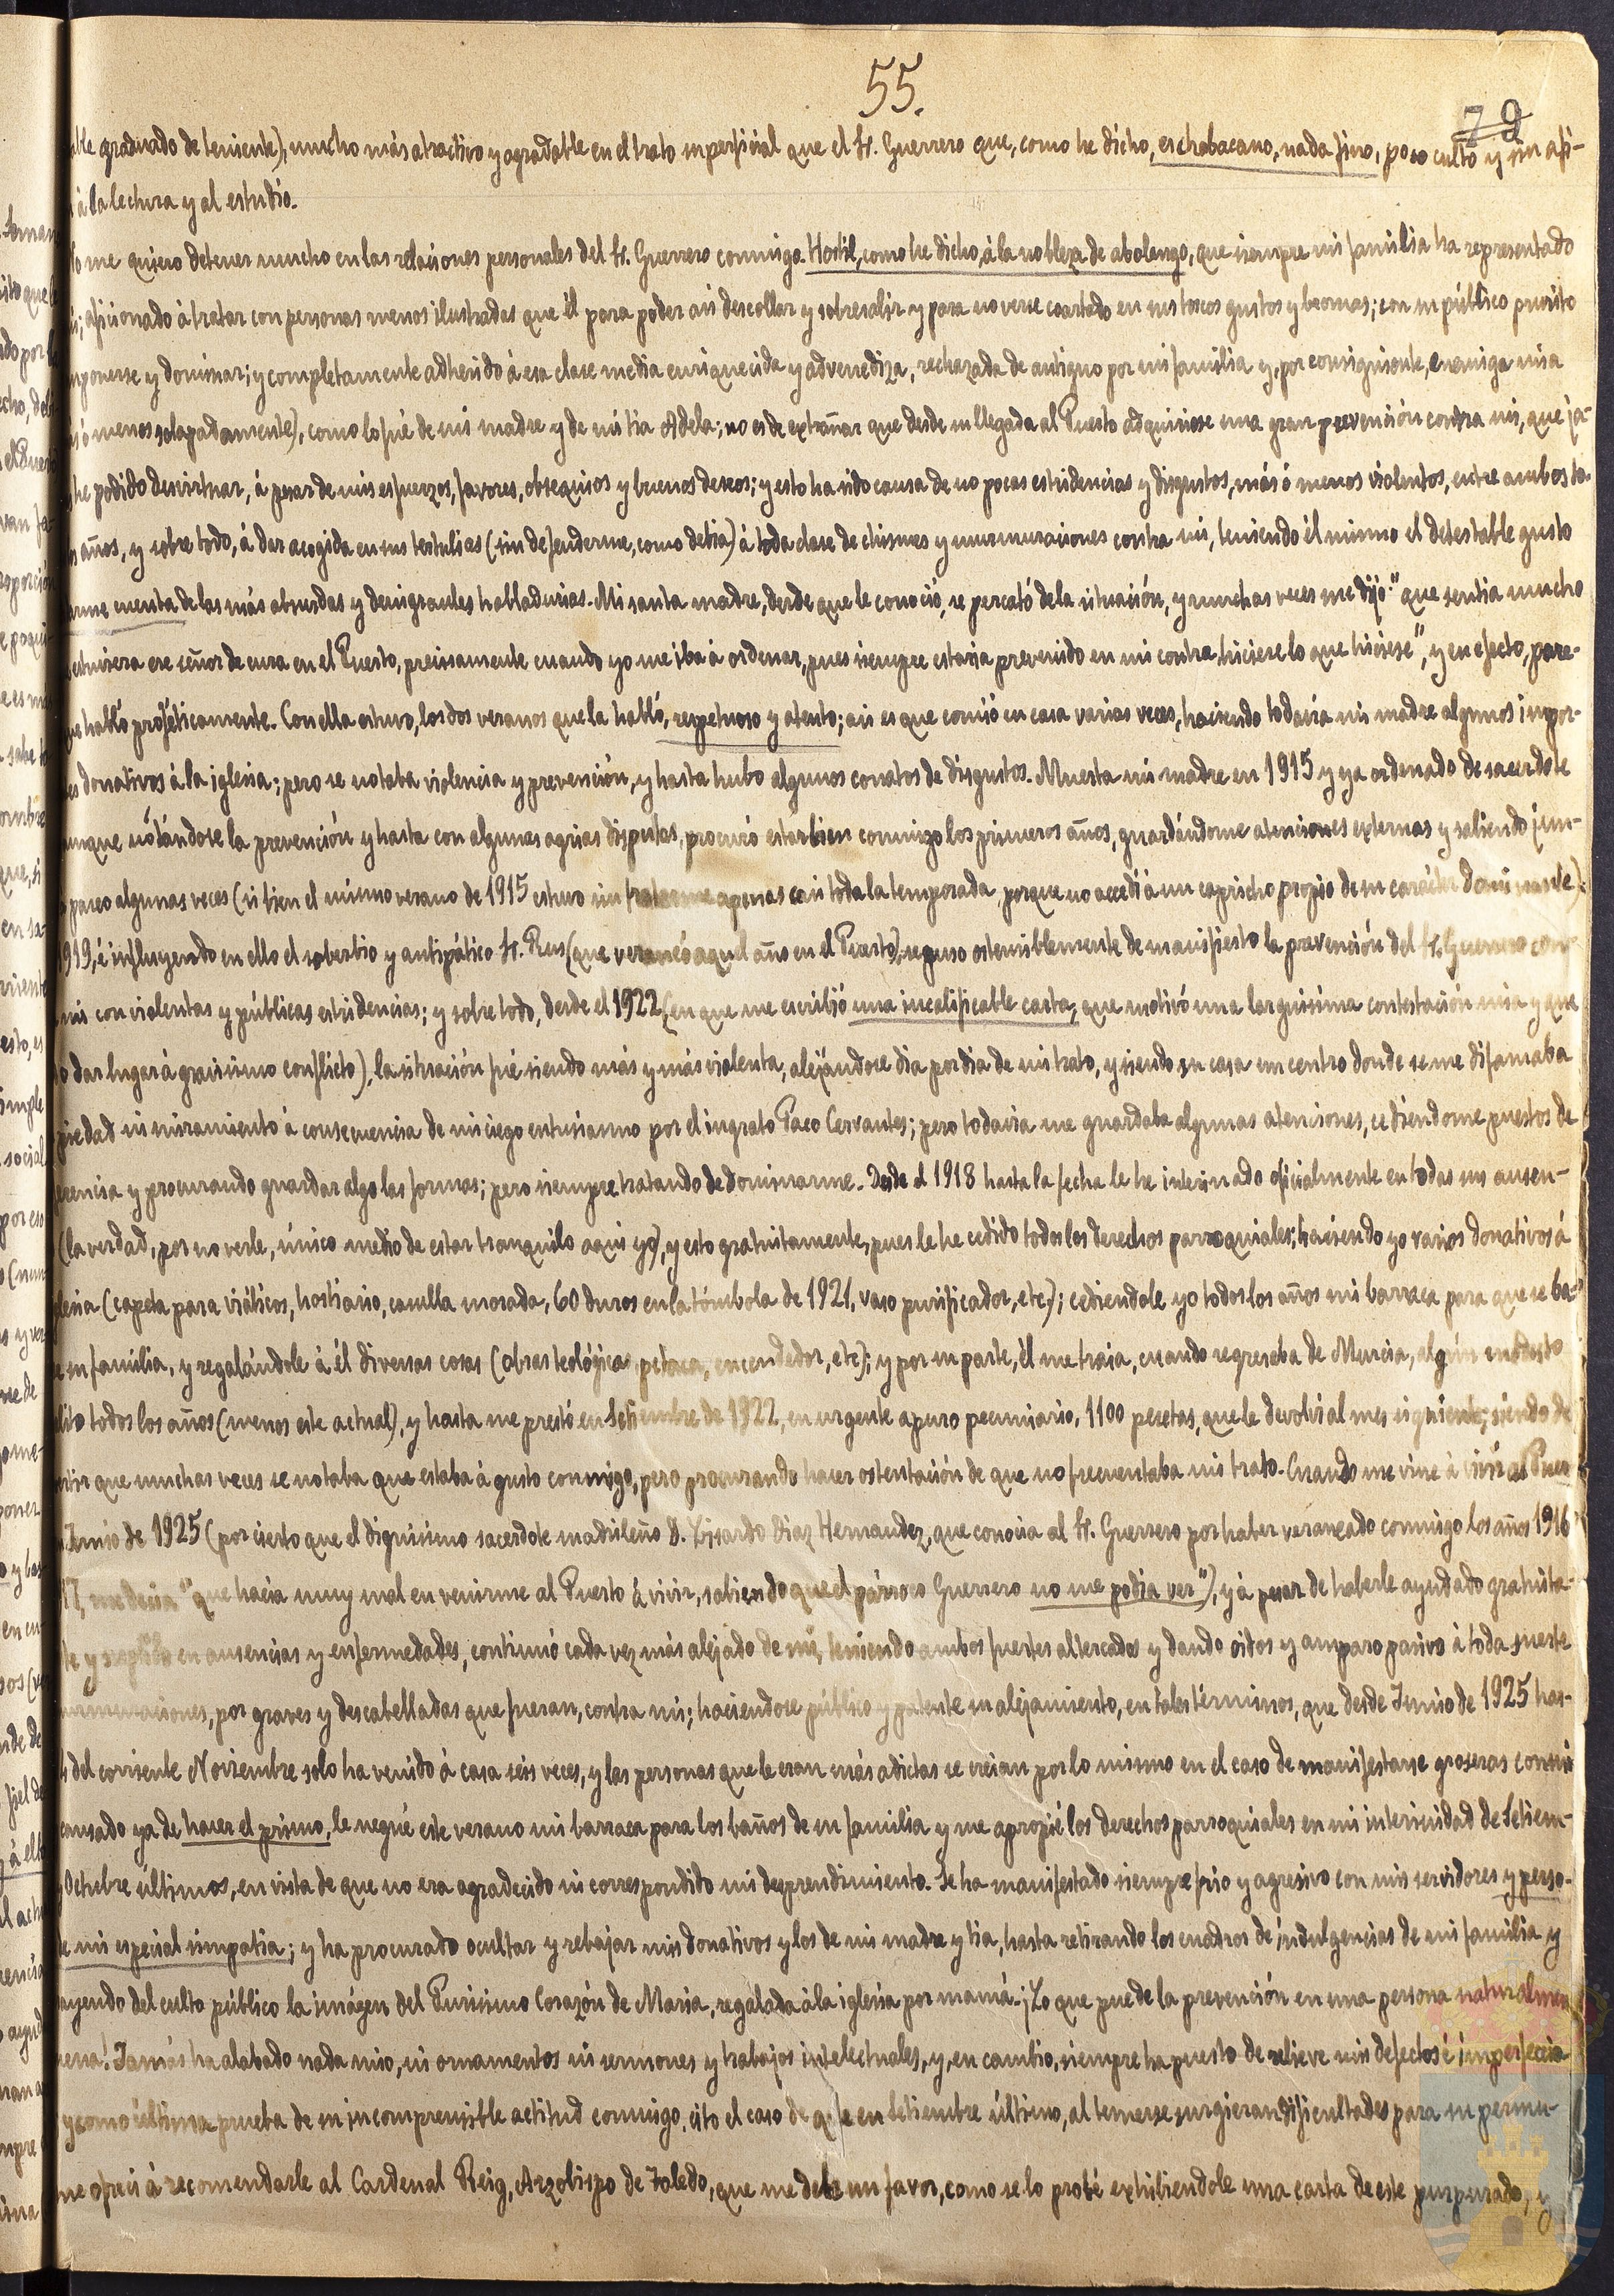 55.
79
able graduado de teniente), mucho más atractivo y agradable en el trato superficial que el Sr. Guerrero que, como he dicho, es chabacano, nada fino, poco culto y sin afi-
á la lectura y al estudio.
No me quiero detener mucho en las relaciones personales del Sr. Guerrero conmigo. Hostil, como he dicho, á la nobleza de abolengo, que siempre mi familia ha representado
aficionado á tratar con personas menos ilustradas que él para poder asi descollar y sobresalir y para no verse coartado en sus toscos gustos y bromas; con su público prurito
imponerse y dominar; y completamente adherido á esa clase media enriquecida y advenediza, rechazada de antiguo por mi familia y, por consiguiente, enemiga mia
ó menos solapadamente), como lo fué de mi madre y de mi tia Adela; no es de extrañar que desde su llegada al Puerto adquiriese una gran prevención contra mi, que ja-
he podido desvirtuar, á pesar de mis esfuerzos, favores, obsequios y buenos deseos; y esto ha sido causa de no pocas estridencias y disgustos, más ó menos violentos, entre ambos to-
años, y sobre todo, á dar acogida en sus tertulias (sin defenderme, como debia) á toda clase de chismes y murmuraciones contra mi, teniendo él mismo el detestable gusto
darme cuenta de las más absurdas y denigrantes habladurias. Mi santa madre, desde que le conoció, se percató de la situación, y muchas veces me dijo: "que sentia mucho
estuviera ese señor de cura en el Puerto, precisamente cuando yo me iba á ordenar, pues siempre estaria prevenido en mi contra, hiciese lo que hiciese", y en efecto, pare-
que habló proféticamente. Con ella estuvo, los dos veranos que la habló, respetuoso y atento; asi es que comió en casa varias veces, haciendo todavia mi madre algunos impor-
tes donativos á la iglesia; pero se notaba violencia y prevención, y hasta hubo algunos conatos de disgustos. Muerta mi madre en 1915 y ya ordenado de sacerdote
aunque notándose la prevención y hasta con algunas agrias disputas, procuró estar bien conmigo los primeros años, guardándome atenciones externas y saliendo jun-
paseo algunas veces (si bien el mismo verano de 1915 estuvo sin tratarme apenas casi toda la temporada, porque no accedi á un capricho propio de su carácter dominante)
1919, é influyendo en ello el soberbio y antipático Sr. Rus (que veraneó aquel año en el Puerto), se puso ostensiblemente de manifiesto la prevención del Sr. Guerrero con-
mi con violentas y públicas estridencias; y sobre todo, desde el 1922 (en que me escribió una incalificable carta, que motivó una larguisima contestación mia y que
dar lugar á gravisimo conflicto), la situación fué siendo más y más violenta, alejándose dia por dia de mi trato, y siendo su casa un centro donde se me difamaba
piedad ni miramiento á consecuencia de mi ciego entusiasmo por el ingrato Paco Cervantes; pero todavia me guardaba algunas atenciones, cediéndome puestos de
erencia y procurando guardar algo las formas; pero siempre tratando de dominarme. Desde el 1918 hasta la fecha le he interinado oficialmente en todas sus ausen-
(la verdad, por no verle, único medio de estar tranquilo aqui yo), y esto gratuitamente, pues le he cedido todos los derechos parroquiales; haciendo yo varios donativos á
iglesia (capeta para viáticos, hostiario, casulla morada, 60 duros en la tómbola de 1921, vaso purificador, etc); cediendole yo todos los años mi barraca para que se ba-
se su familia, y regalándole á él diversas cosas (obras teológicas, petaca, encendedor, etc); y por su parte, él me traia, cuando regresaba de Murcia, algún modesto
todos los años (menos este actual), y hasta me prestó en Setiembre de 1922, en urgente apuro pecuniario, 1100 pesetas, que le devolvi al mes siguiente; siendo de
que muchas veces se notaba que estaba á gusto conmigo, pero procurando hacer ostentación de que no frecuentaba mi trato. Cuando me vine á vivir al Puer
Junio de 1925 (por cierto que el dignisimo sacerdote madrileño D. Lisardo Diaz Hernandez, que conocia al Sr. Guerrero por haber veraneado conmigo los años 1916
17, me decia "que hacia muy mal en venirme al Puerto á vivir, sabiendo que el párroco Guerrero no me podia ver"), y á pesar de haberle ayudado gratuita-
te y en ausencias y enfermedades, continuó cada vez más alejado de mi, teniendo ambos fuertes altercados y dando oidos y amparo pasivo á toda suerte
murmuraciones, por graves y descabelladas que fueran, contra mi; haciendose público y patente su alejamiento, en tales términos, que desde Junio de 1925 has-
del corriente Noviembre solo ha venido á casa seis veces, y las personas que le eran más adictas se creian por lo mismo en el caso de manifestarse groseras conmi
cansado ya de hacer el primo, le negué este verano mi barraca para los baños de su familia y me apropié los derechos parroquiales en mi interinidad de Setiem-
Octubre últimos, en vista de que no era agradecido ni correspondido mi desprendimiento. Se ha manifestado siempre frio y agresivo con mis servidores y perso-
de mi especial simpatia; y ha procurado ocultar y rebajar mis donativos y los de mi madre y tia, hasta retirando los cuadros de indulgencias de mi familia y
ayendo del culto público la imágen del Purisimo Corazón de Maria, regalada á la iglesia por mamá. ¡Lo que puede la prevención en una persona naturalmen
buena! Jamás ha alabado nada mio, ni ornamentos ni sermones y trabajos intelectuales, y, en cambio, siempre ha puesto de relieve mis defectos é imperfeccio
y como última prueba de su incomprensible actitud conmigo, cito el caso de que en Setiembre último, al temerse surgieran dificultades para su permu-
me ofreci á recomendarle al Cardenal Reig, Arzobispo de Toledo, que me debe un favor, como se lo probé exhibiendole una carta de este purpurado, y